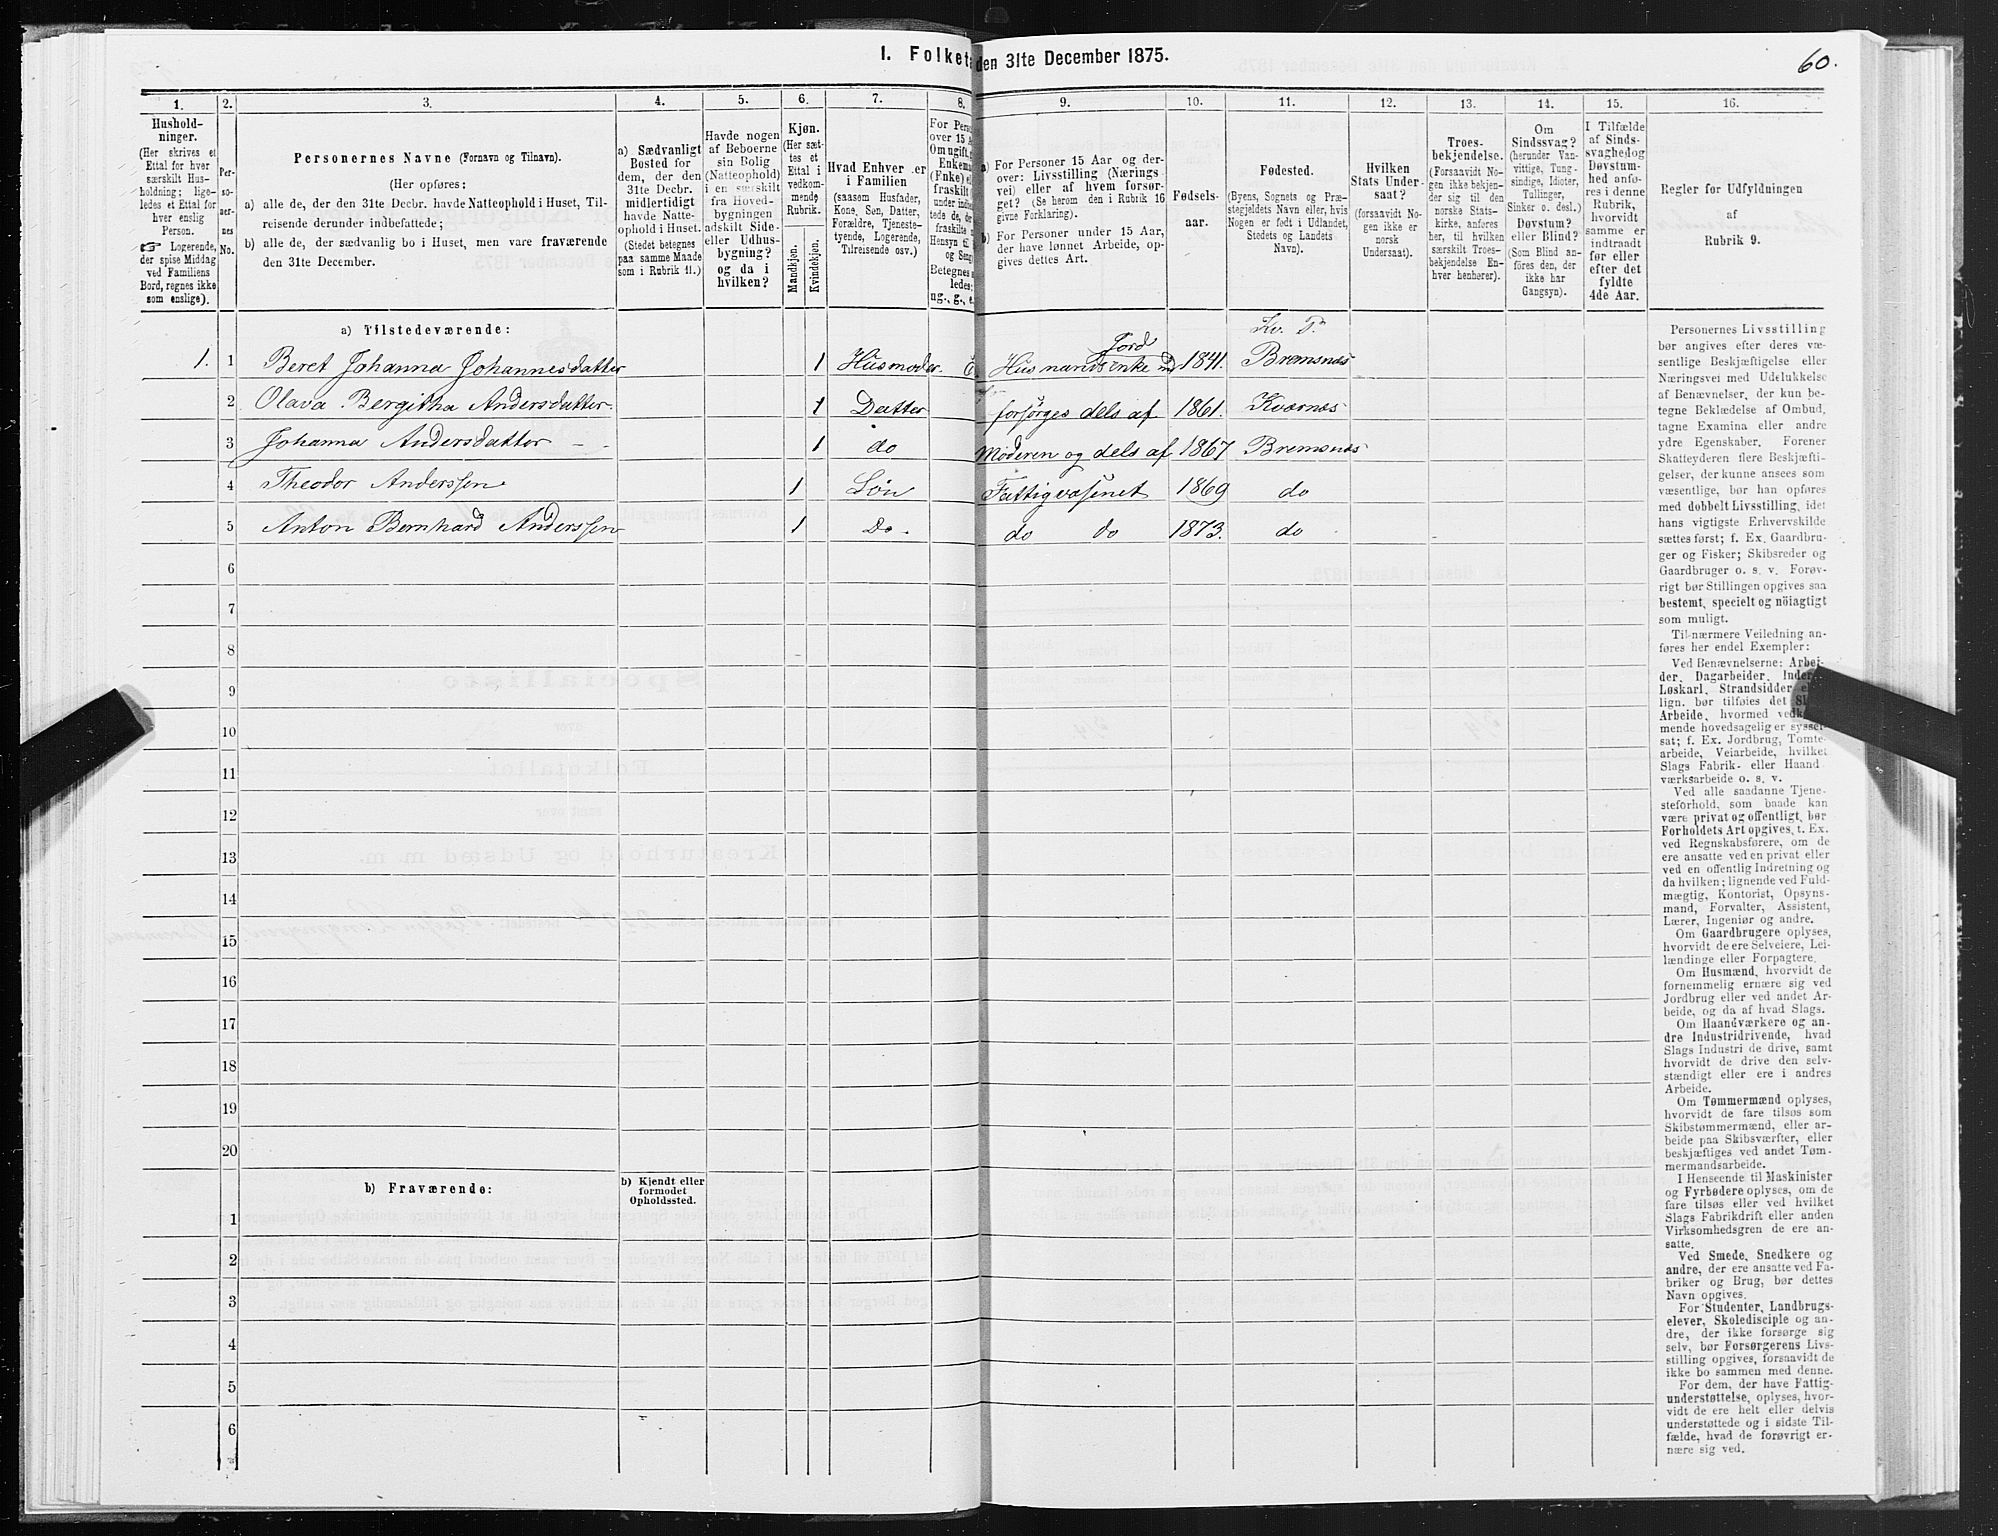 1. Folket
den 31te December 1875.
60.
1.
2.
3.
4.
5.
6.
7.
8.
9.
10.
11.
12.
13.
14.
15.
16.
Hushold-
ninger.
(Her skrives et
Ettal for hver
særskilt Hus-
holdning; lige-
ledes et Ettal for
hver enslig
Person.
☞ Logerende,
der spise Middag
ved Familiens
Bord, regnes ikke
som enslige).
Per-
so-
ner-
nes
No.
Personernes Navne (Fornavn og Tilnavn).
(Her opføres:
a) alle de, der den 31te Decbr. havde Natteophold i Huset, Til-
reisende derunder indbefattede;
b) alle de, der sædvanlig bo i Huset, men vare fraværende
den 31te December.
a) Sædvanligt
Bosted for
dem, der den
31te Decbr.
midlertidigt
havde Natte-
ophold i Huset.
(Stedet betegnes
paa samme Maade
som i Rubrik 11.)
Havde nogen
af Beboerne
sin Bolig
(Natteophold)
i en særskilt
fra Hoved-
bygningen
adskilt Side-
eller Udhus-
bygning?
og da i
hvilken?
Kjøn.
(Her sæt-
tes et
Ettal i
vedkom-
mende
Rubrik.
Mandkjøn.
Kvindekjøn.
Hvad Enhver er
i Familien
(saasom Husfader,
Kone, Søn, Datter,
Forældre, Tjeneste-
tyende, Logerende,
Tilreisende osv.)
For Perso
over 15 A
Om ugift, g
Enkema
(Enke) el
fraskilt
under indb
tede de, de
fraskilte
Hensyn til
og Seng
Betegnes
ledes:
ug., g., e.
a) For Personer 15 Aar og der-
over: Livsstilling (Nærings
vei) eller af hvem forsør-
get? (Se herom den i Rubrik 16
givne Forklaring).
b) For Personer under 15 Aar,
der have lønnet Arbeide, op-
gives dettes Art.
Fødsels-
aar.
Fødested.
(Byens, Sognets og Præ-
stegjeldets Navn eller, hvis
Nogen er født i Udlandet,
Stedets og Landets
Navn).
Hvilken
Stats Under-
saat?
(forsaavidt No-
gen ikke er
norsk
Undersaat).
Troes-
bekjendelse.
(Forsaavidt No-
gen ikke bekjen-
der sig til den
norske Stats-
kirke, anføres
her, til hvilken
særskilt Troes-
bekjendelse En-
hver henhører).
Om
Sindssvag?
(herunder Van-
vittige, Tung-
sindige, Idioter,
Tullinger,
Sinker o. desl.)
Døvstum?
eller Blind?
(Som Blind an-
føres den, der
ikke har
Gangsyn).
I Tilfælde
af Sinds-
svaghed og
Døvstum-
hed anfø-
res i denne
Rubrik,
hvorvidt
samme er
indtraadt
før eller
efter det
fyldte
4de Aar.
Regler for Udfyldningen
af
Rubrik 9.
a) Tilstedeværende:
Kv. P.
1. 1 Beret Johanna Johannesdatter 1 Husmoder. E. Husmandsenke m Jord 1841. Bremsnæs
2 Olava Bergitha Andersdatter 1 Datter forsørges dels af 1861. Kvernæs
3 Johanna Andersdatter 1 do Moderen og dels af 1867 Bremsnæs
4 Theodor Anderssen 1 Søn Fattigvæsenet 1869 do
5 Anton Bernhard Anderssen 1 Do. do do 1873. do
6
7
8
9
10
11
12
13
14
15
16
17
18
19
20
b) Fraværende:
b) Kjendt eller
formodet
Opholdssted.
1
2
3
4
5
6
Personernes Livsstilling
bør angives efter deres væ-
sentlige Beskjæftigelse eller
Næringsvei med Udelukkelse
af Benævnelser, der kun be-
tegne Beklædelse af Ombud,
tagne Examina eller andre
ydre Egenskaber. Forener
Skatteyderen flere Beskjæfti-
gelser, der kunne ansees som
væsentlige, bør han opføres
med dobbelt Livsstilling, idet
hans vigtigste Erhvervskilde
sættes først; f. Ex. Gaardbru-
ger og Fisker; Skibsreder og
Gaardbruger o. s. v. Forøv-
rigt bør Stillingen opgives saa
bestemt, specielt og nöiagtigt
som muligt.
Til nærmere Veiledning an-
føres her endel Exempler:
Ved Benævnelserne: Arbei-
der, Dagarbeider, Inder
Løskarl, Strandsidder el
lign. bør tilføies det Sl
Arbeide, hvormed vedk
mende hovedsagelig er syssel-
sat; f. Ex. Jordbrug, Tomte-
arbeide, Veiarbeide, hvilket
Slags Fabrik- eller Haand
værksarbeide o. s. v.
Ved alle saadanne Tjene-
steforhold, som baade kan
være privat og offentligt, bør
Forholdets Art opgives, t. Ex.
ved Regnskabsførere, om de
ere ansatte ved en privat eller
ved en offentlig Indretning og
da hvilken; lignende ved Fuld-
mægtig, Kontorist, Opsyns-
mand, Forvalter, Assistent,
Lærer, Ingeniør og andre.
Om Gaardbrugere oplyses,
hvorvidt de ere Selveiere, Lei-
lændinge eller Forpagtere.
Om Husmænd, hvorvidt de
fornemmelig ernære sig ved
Jordbrug eller ved andet Ar-
beide, og da af hvad Slags.
Om Haandværkere og an-
dre Industridrivende, hvad
Slags Industri de drive, samt
hvorvidt de drive den selv-
stændigt eller ere i andres
Arbeide.
Om Tømmermænd oplyses,
hvorvidt de fare tilsøs som
Skibstømmermænd, eller ar-
beide paa Skibsværfter, eller
beskjæftiges ved andet Tøm-
mermandsarbeide.
I Henseende til Maskinister
og Fyrbødere oplyses, om de
fare tilsøs eller ved hvilket
Slags Fabrikdrift eller anden
Virksomhedsgren de ere an-
satte.
Ved Smede, Snedkere og
andre, der ere ansatte ved Fa-
briker og Brug, bør dettes
Navn opgives.
For Studenter, Landbrugs-
elever, Skoledisciple og an-
dre, der ikke forsørge sig
selv, bør Forsørgerens Livs-
stilling opgives, forsaavidt de
ikke bo sammen med denne.
For dem, der have Fattig-
understøttelse, oplyses, hvor-
vidt de ere helt eller delvis
understøttede og i sidste Til-
fælde, hvad de forøvrigt er-
nære sig ved.